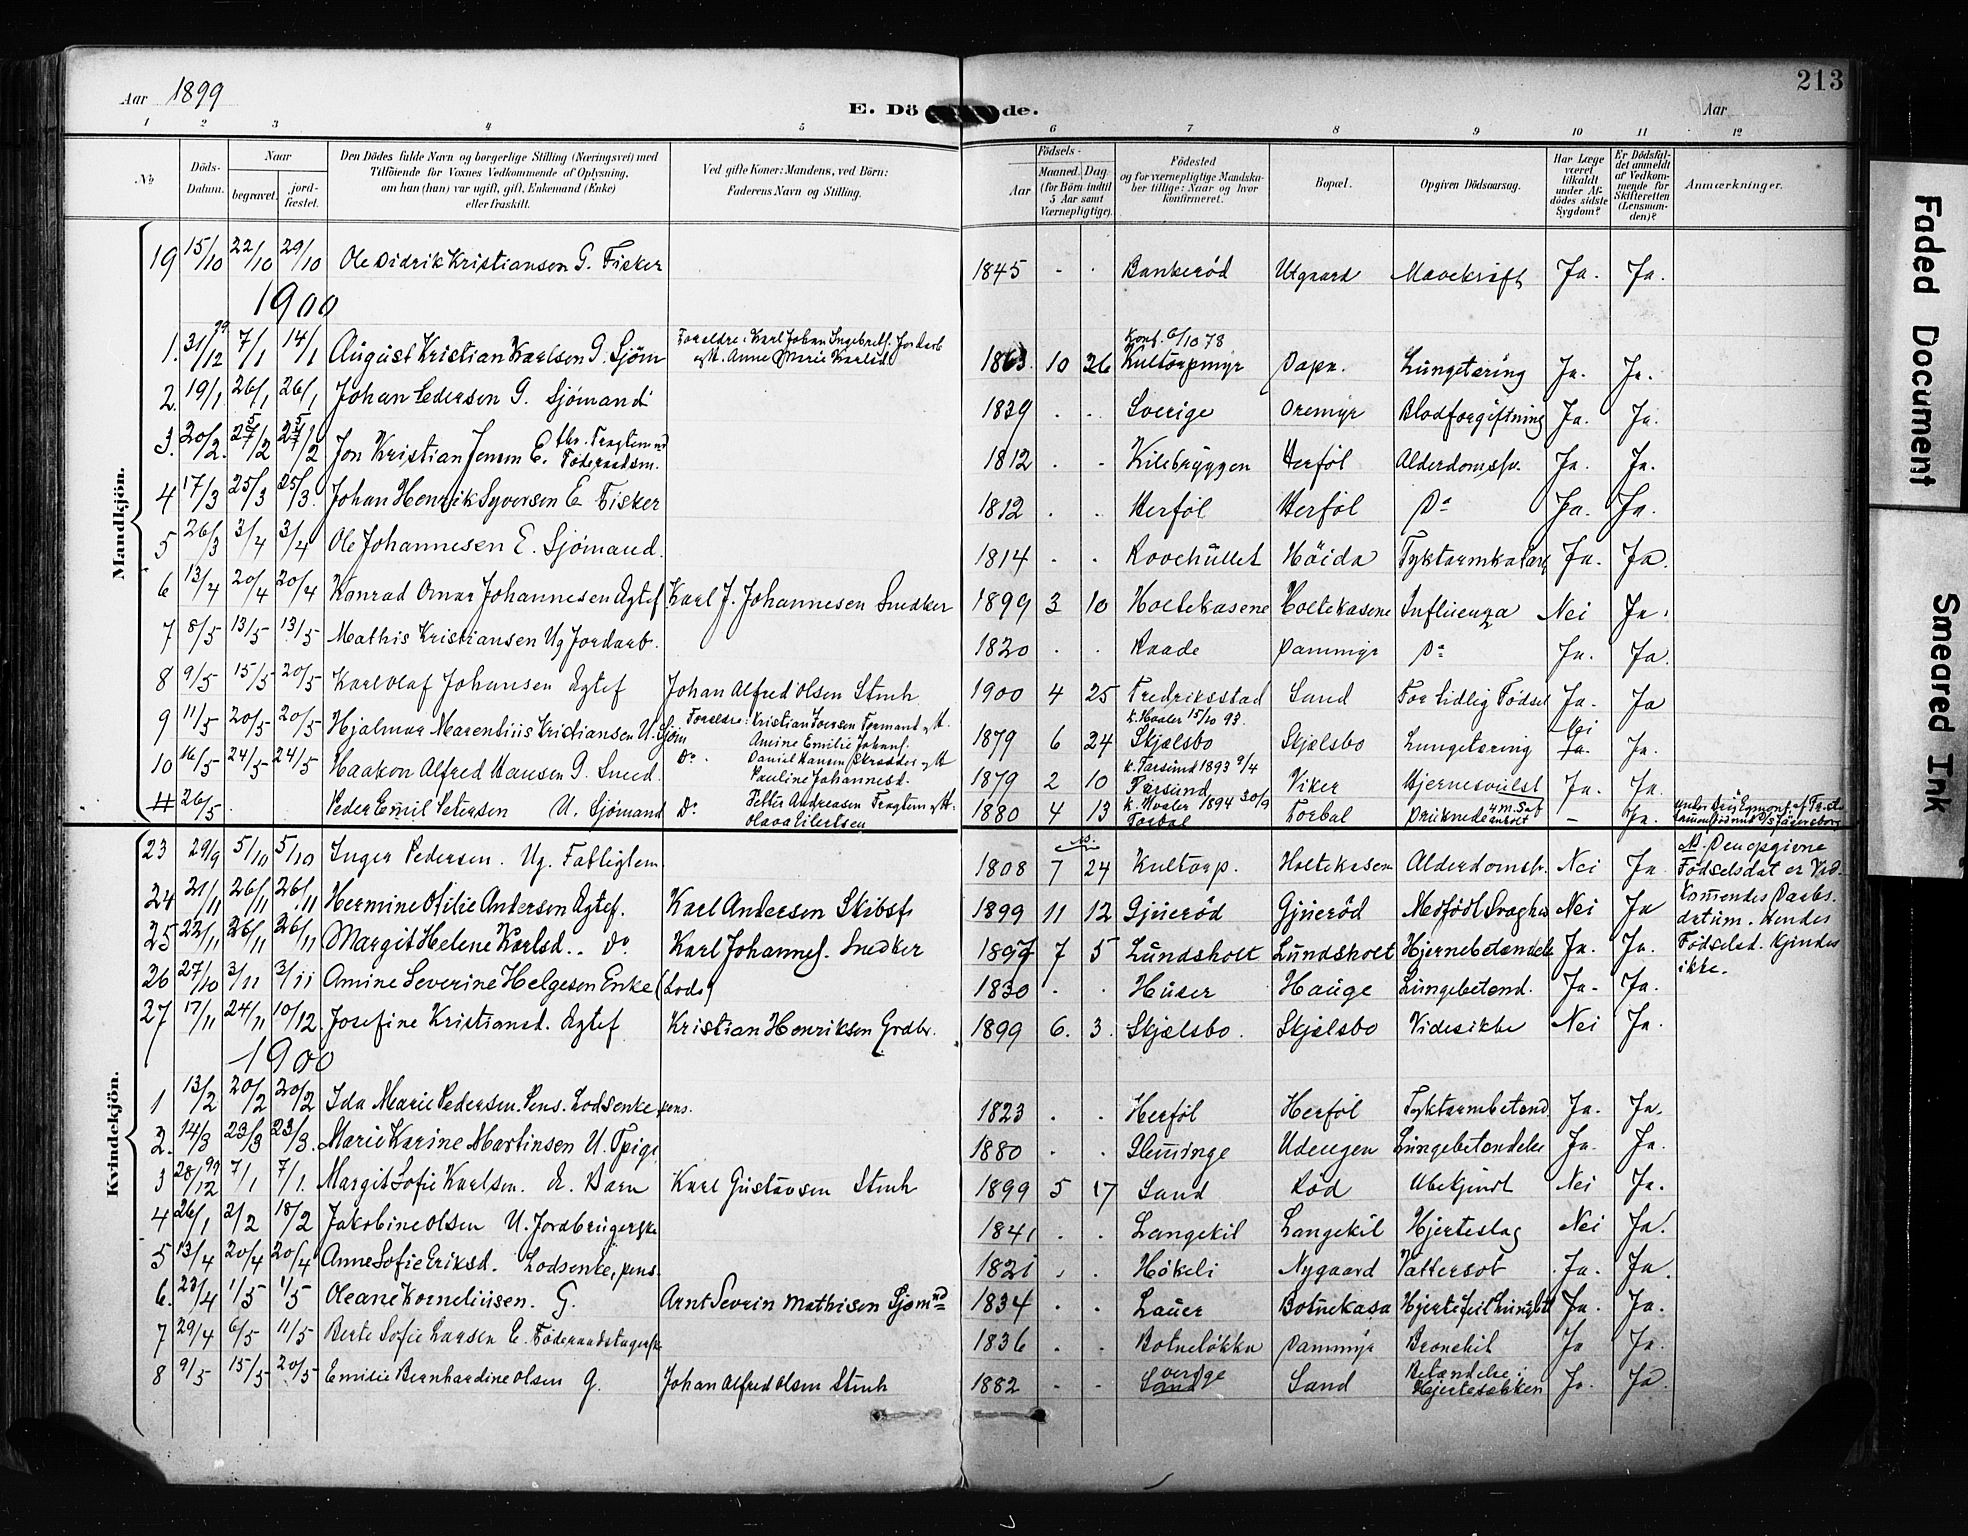 Aar 1899
E. Dö de.
Aar
213
1 2 3 4 5 6 7 8 9 10 11 12
No
Döds-Datum.
Naar
begravet.
jord-fæstet.
Den Dödes fulde Navn og borgerlige Stilling (Næringsvei) med
Tilföiende for Voxnes Vedkommende af Oplysning,
om han (hun) var ugift, gift, Enkemand (Enke)
eller fraskilt.
Ved gifte Koner: Mandens, ved Börn:
Faderens Navn og Stilling.
Födsels-
Aar
Maaned. Dag.
(for Börn indtil
5 Aar samt
Værnepligtige).
Födested
og for værnepligtige Mandska-
ber tillige: Naar og hvor
konfirmeret.
Bopæl.
Opgiven Dödsaarsag.
Har Læge
været
tilkaldt
under Af-
dödes sidste
Sygdom?
Er Dödsfal-
det anmeldt
af Vedkom-
mende for
Skifteretten
(Lensman-
den)?
Anmærkninger.
Mandkjön.
19 15/10 22/10 29/10 Ole Didrik Kristiansen G. Fisker 1845 - . Bankerød Utgaard Mavekræft Ja. Ja.
1900
1. 31/12 99 7/1 14/1 August Kristian Karlsen G. Sjöm Forældre: Karl Johan Ingebretf. Jordarb og H. Anne Marie Karlsd. 1863 10 26 Konf. 6/10 78 Kultorpmyr Papr. Lungetæring Ja. Ja.
2. 19/1 26/1 26/1 Johan Pedersen G. Sjömand 1839 . . Sverige Oremyr Blodforgiftning Ja. Ja.
3. 20/2. 25/2 25/2 Jon Kristian Jensen E. fhv. Fragtemnd Föderaadsm. 1812 . . Kilebryggen Herføl Alderdomssv. Ja. Ja.
4 17/3 25/3 25/3. Johan Henrik Syversen E Fisker 1812 . . Herføl Herføl Do Ja. Ja.
5 26/3 3/4 3/4 Ole Johannesen E. Sjömand. 1814 . . Rovehullet Höida Tyktarmkatarr Ja. Ja.
6 13/4 20/4 20/4 Konrad Omar Johannesen Ægtef Karl J. Johannesen Snedker 1899 3 10 Holtekasene Holtekasene Influenza Nei Ja.
7 8/5 13/5 13/5 Mathis Kristiansen Ug Jordarb. 1820 . . Raade Dammyr Do Ja. Ja.
8 9/5 15/5 20/5 Karl Olaf Johansen Ægtef Johan Alfred Olsen Stenh 1900 4 25 Fredriksstad Sand For tidlig Fødsel Ja. Ja
9 11/5 20/5 20/5 Hjalmar Marentius Kristiansen U. Sjøm Forældre: Kristian Iversen Formand og H. Amine Emilie Johansf. 1879 6 24 k. Hvaler 15/10 93. Skjælsbo Skjælsbo Lungetæring Nei Ja. Ja.
10 16/5 24/5 24/5 Haakon Alfred Hansen G. Sned. Do. Daniel Hansen Skrædder og H Pauline Johannesd. 1879 2 10 k. Farsund 1893 9/4 Farsund Viker Hjernesvulst Ja. Ja.
11 26/5 . . Peder Emil Petersen U. Sjömand Do Petter Andreasen Fragtem og H. Olava Eilertsen 1880 4 13 k. Hvaler 1894 30/9 Torbal Torbal Druknede - Ja.
Kvindekjön.
23 29/9 5/10 5/10 Inger Pedersen. Ug. Fattiglem 1808 NB. 7 24 Kultorp. Holtekasen Alderdomsv. Nei Ja NB. Den opgivne
24 21/11 26/11 26/11 Hermine Otilie Andersen Ægtef. Karl Andersen Skibsf. 1899 11 12 Gjuerød Gjuerød Medfödt Svaghed Nei Ja Fødselsdat er Ved-
25 22/11 26/11 26/11 Margit Helene Karlsd. . Do Karl Johannes. Snedker 1897 7 5 Lundsholt Lundsholt Hjernebetændelse Ja. Ja. kommendes Daabs-
datum. Hendes
Fødselsd. kjendes
ikke.
26 27/10 3/11 3/11 Amine Severine Helgesen Enke (Lods) 1830 . . Huser Hauge Lungebetænd. Ja. Ja.
27 17/11 24/11 10/12 Josefine Kristiansd. Ægtef Kristian Henriksen Grdbr. 1899 6. 3. Skjælsbo. Skjælsbo Vides ikke Nei Ja.
1900
1 13/2 20/2 20/2 Ida Marie Pedersen. Pens. Lodsenke, pens. 1823 . . Herføl Herføl Tyktarmbetænd Ja. Ja.
2. 14/3 23/3 23/3. Marie Karine Martinsen U. Tpige 1880 . . Glemminge Udengen Lungebetændelse Ja. Ja.
3 28/12 99 7/1 7/1. Margit Sofie Karlsen. Æ. Barn Karl Gustavsen Stenh 1899 5 17 Sand Rød Ubekjendt Nei Ja.
4 26/1 2/2 18/2 Jakobine Olsen U. Jordbrugerske 1841 . . Langekil Langekil Hjerteslag Nei Ja.
5 13/4 20/4 20/4 Anne Sofie Eriksd. Lodsenke, pens. 1821 . . Høkeli Nygaard Vattersot Ja. Ja.
6. 23/4 1/5 1/5 Oleane Korneliusen. G. Arnt Severin Mathisen Sjømnd 1834 . . Lauer Botnekasa Hjertefeil Lungebet Ja. Ja.
7 29/4 6/5 11/5 Berte Sofie Larsen E. Föderaadstagerske 1836 . . Botneløkka Dammyr Bronchit Ja Ja.
8 9/5 15/5 20/5 Emilie Bernhardine Olsen G. Johan Alfred Olsen Stenh 1882 - - Sverige Sand Betændelse i Hjertesækken Ja. Ja.
Faded Document
Smeared Ink